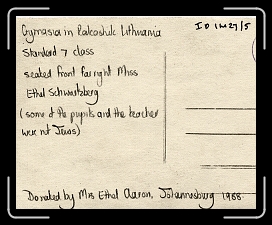 Gymasia in Rakoshik Lithuania
Standard 7 class
seated front far right Miss
Ethel Schwartzberg
(some of the pupils and the teacher
were not Jews)
Donated by Mrs Ethel Aaron, Johannesburg 1988